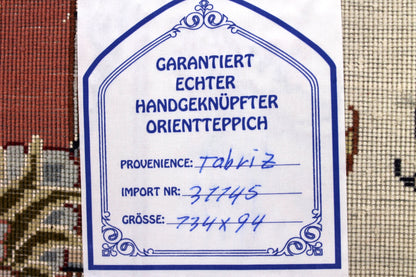 GARANTIERT
ECHTER
HANDGEKNÜPFTER
ORIENTTEPPICH
PROVENIENCE: Tabriz
IMPORT NR: 31145
GRÖSSE: 134 x 94